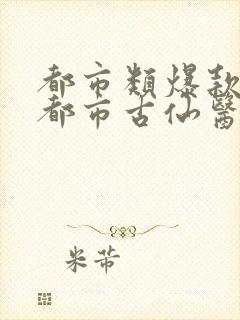 都市類爆款
都市古仙醫
米芾